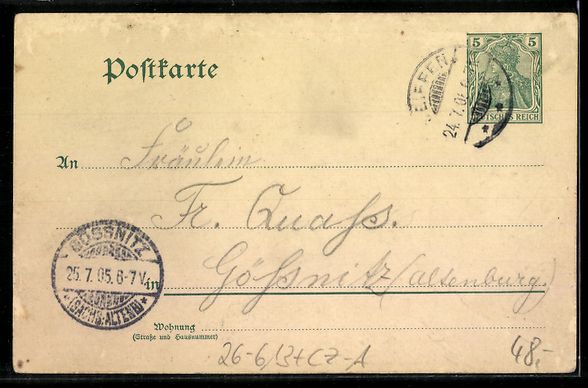 5 5
Postkarte
DEUTSCHES REICH
24.7.05
An Fräulein
Fr. Quass.
GÖSSNITZ
25.7.05. 6-7V.
(SACHS.-ALTENB)
in Gößnitz (altenburg.)
Wohnung
(Straße und Hausnummer)
48,-